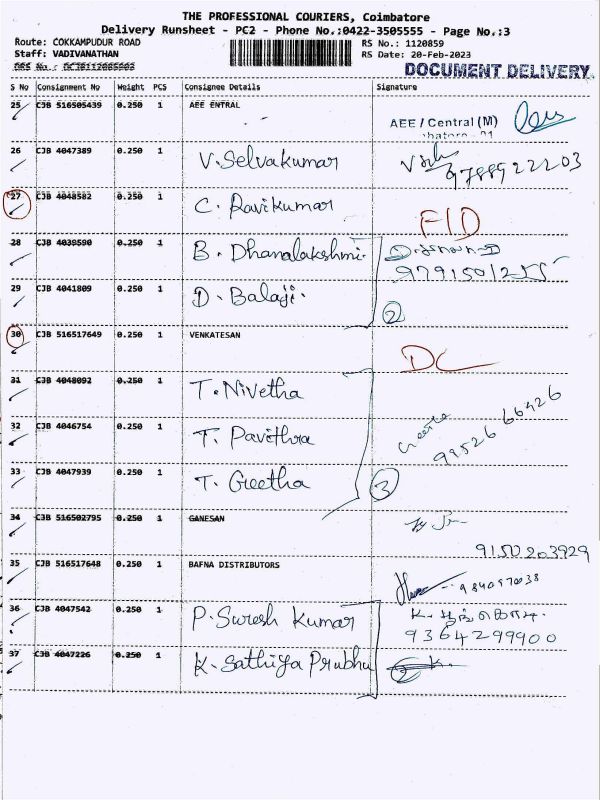 THE PROFESSIONAL COURIERS, Coimbatore
Delivery Runsheet - PC2 - Phone No.:0422-3505555 - Page No.:3
Route: COKKAMPUDUR ROAD RS No.: 1120859
Staff: VADIVANATHAN RS Date: 20-Feb-2023
DRS No.:
DOCUMENT DELIVERY
S No Consignment No Weight PCS Consignee Details Signature
25 CJB 516505439 0.250 1 AEE ENTRAL AEE / Central (M)
26 CJB 4047389 0.250 1 V. Selvakumar 9788922203
27 CJB 4048582 0.250 1 C. Ravikumar FID
28 CJB 4039590 0.250 1 B. Dhanalakshmi.
29 CJB 4041809 0.250 1 D. Balaji. 2
30 CJB 516517649 0.250 1 VENKATESAN DC
31 CJB 4048092 0.250 1 T. Nivetha
32 CJB 4046754 0.250 1 T. Pavithra 99526 66426
33 CJB 4047939 0.250 1 T. Geetha 3
34 CJB 516502795 0.250 1 GANESAN 9150203929
35 CJB 516517648 0.250 1 BAFNA DISTRIBUTORS
36 CJB 4047542 0.250 1 P. Suresh Kumar 9364299900
37 CJB 4047226 0.250 1 K. Sathiya Prabhu 2